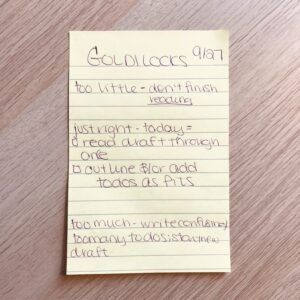 GOLDILOCKS 9/27
too little - don't finish
reading
just right - today =
□ read draft through
once
□ outline &/or add
todos as fits
too much - write confusing
too many todos; start new
draft